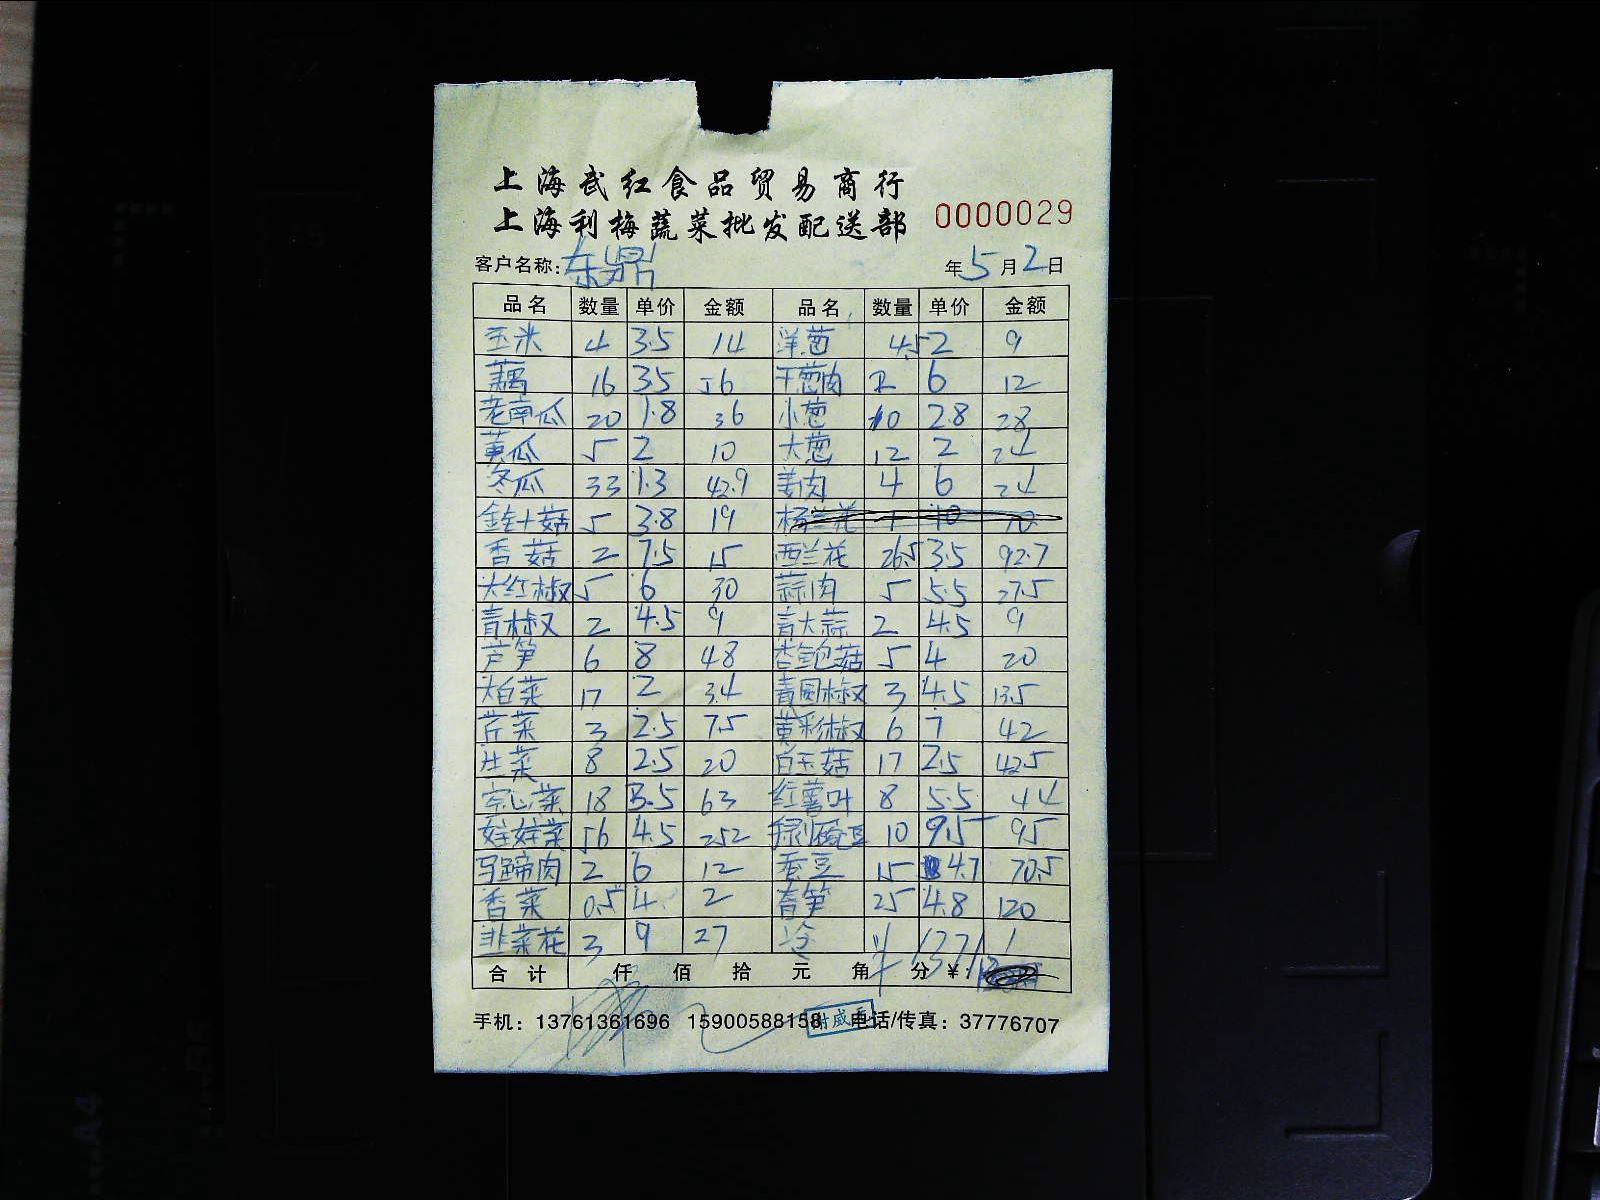 上海武红食品贸易商行
上海利梅蔬菜批发配送部 0000029
客户名称:东鼎 年5月2日
品名 数量 单价 金额 品名 数量 单价 金额
玉米 4 3.5 14 洋葱 4.5 2 9
藕 16 3.5 56 干葱肉 2 6 12
老南瓜 20 1.8 36 小葱 10 2.8 28
黄瓜 5 2 10 大葱 12 2 24
冬瓜 33 1.3 42.9 姜肉 4 6 24
金针菇 5 3.8 19 杨兰花 1 10 10
香菇 2 7.5 15 西兰花 26.5 3.5 92.7
大红椒 5 6 30 蒜肉 5 5.5 27.5
青椒 2 4.5 9 青大蒜 2 4.5 9
芦笋 6 8 48 杏鲍菇 5 4 20
大白菜 17 2 34 青圆椒 3 4.5 13.5
芹菜 3 2.5 7.5 黄彩椒 6 7 42
生菜 8 2.5 20 白玉菇 17 2.5 42.5
空心菜 18 3.5 63 红薯叶 8 5.5 44
娃娃菜 56 4.5 252 绿豌豆 10 9.5 95
马蹄肉 2 6 12 蚕豆 15 4.7 70.5
香菜 0.5 4 2 莴笋 25 4.8 120
韭菜花 3 9 27 1371
合计 仟 佰 拾 元 角 分 ¥:
手机: 13761361696 15900588158 电话/传真: 37776707